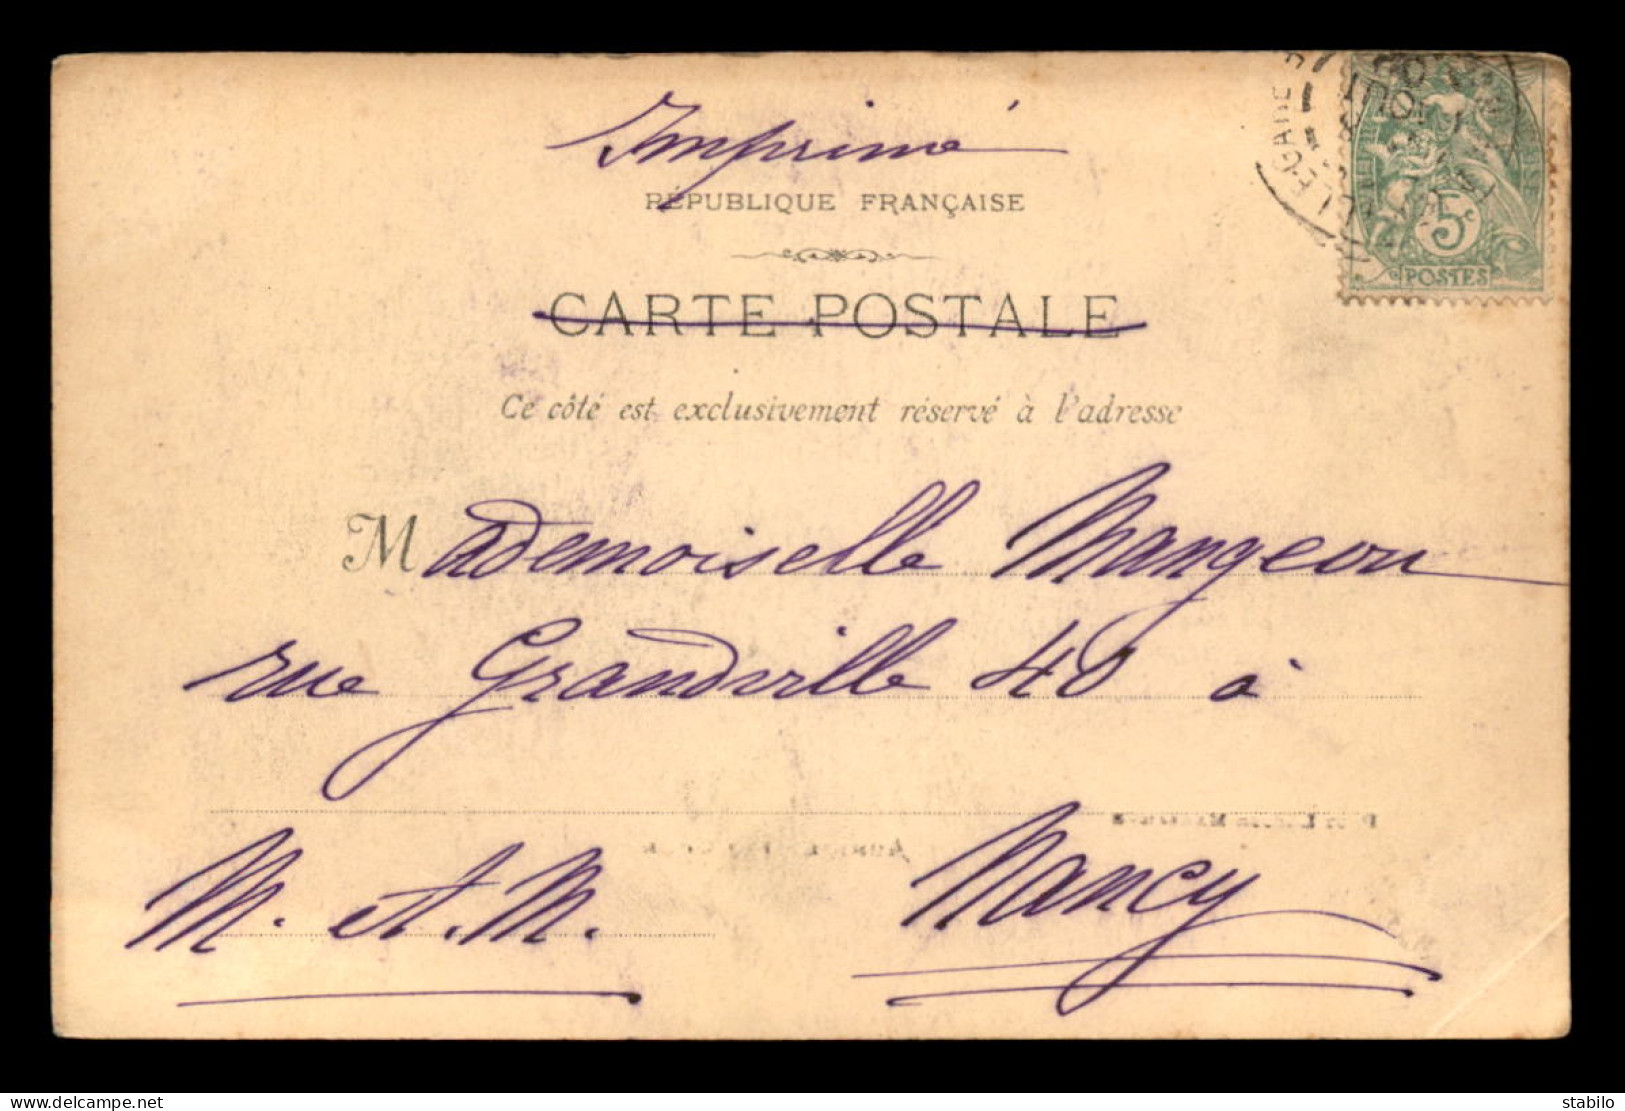 Imprimé
RÉPUBLIQUE FRANÇAISE
CARTE POSTALE
Ce côté est exclusivement réservé à l'adresse
Mademoiselle Mangeon
rue Grandville 40 à
Nancy
M. et M.
5c
POSTES
stabilo